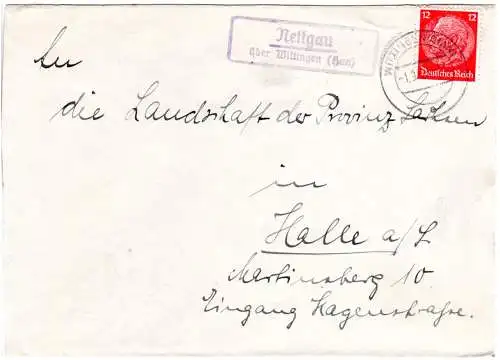 Nettgau
über Wittingen (Han)
12 12
Deutsches Reich
An
die Landschaft der Provinz Sachsen
in
Halle a/S
Martinsberg 10
Eingang Hagenstraße.